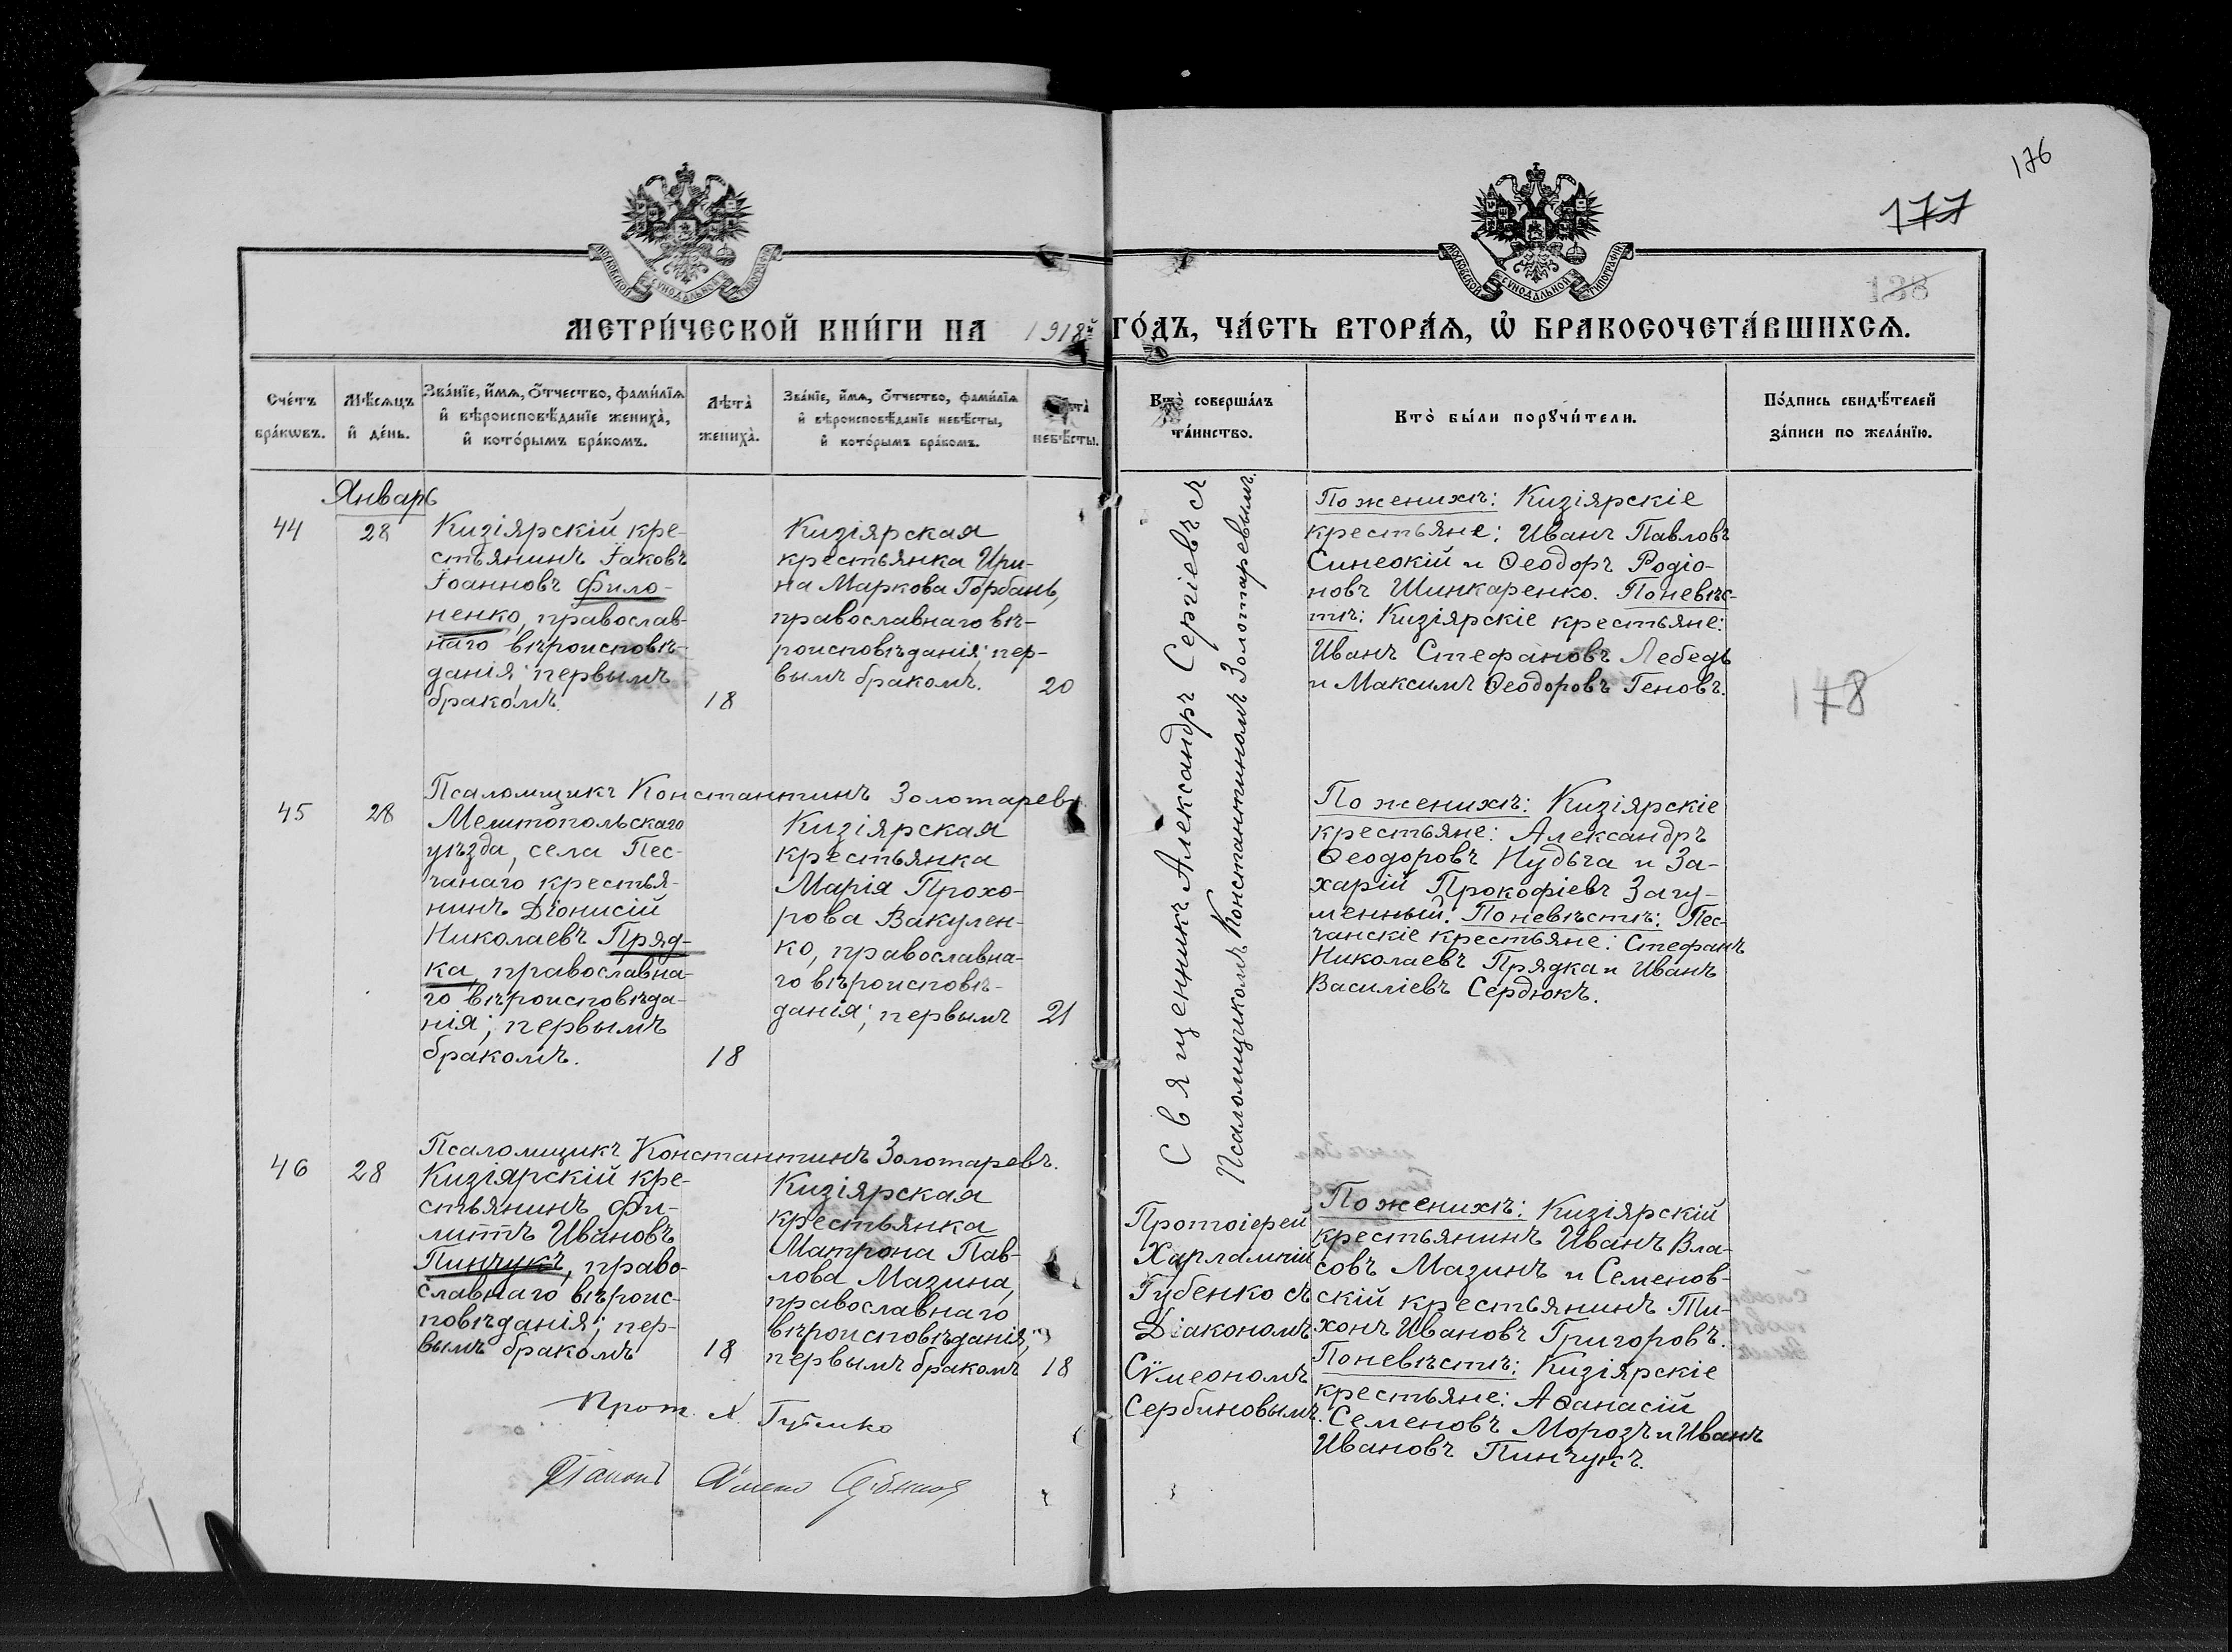 176
177
138
МОСКОВСКОЙ СѴНОДАЛЬНОЙ ТИПОГРАФІИ
МОСКОВСКОЙ СѴНОДАЛЬНОЙ ТИПОГРАФІИ
МЕТРИ́ЧЕСКОЙ КНИ́ГИ НА 1918й ГО́ДЪ, ЧА́СТЬ ВТОРА́Я, Ѡ҆ БРАКОСОЧЕТА́ВШИХСѦ.
Сче́тъ
бра́кѡвъ.
Мѣ́сѧцъ
и҆ де́нь.
Зва́нїе, и҆́мѧ, ѻ҆́тчество, фами́лїѧ
и҆ вѣроисповѣ́данїе жениха̀,
и҆ кото́рымъ бра́комъ.
Лѣта̀
жениха̀.
Зва́нїе, и҆́мѧ, ѻ҆́тчество, фами́лїѧ
и҆ вѣроисповѣ́данїе невѣ́сты,
и҆ кото́рымъ бра́комъ.
Лѣта̀
невѣ́сты.
Кто̀ соверша́лъ
та́инство.
Кто̀ бы́ли порꙋчи́тели.
По́дпись свидѣ́телей
за́писи по жела́нїю.
Январь
44
28
Кизіярскій кре-
стьянинъ Іаковъ
Іоанновъ Фило-
ненко, православ-
наго вѣроисповѣ-
данія; первымъ
бракомъ.
18
Кизіярская
крестьянка Ири-
на Маркова Горбань,
православнаго вѣ-
роисповѣданія; пер-
вымъ бракомъ.
20
Священникъ Александръ Сергіевъ съ
Псаломщикомъ Константиномъ Золотаревымъ.
По женихѣ: Кизіярскіе
крестьяне: Иванъ Павловъ
Синеокій и Ѳеодоръ Родіо-
новъ Шинкаренко. По невѣс-
тѣ: Кизіярскіе крестьяне:
Иванъ Стефановъ Лебедь
и Максимъ Ѳеодоровъ Геновъ.
178
Псаломщикъ Константинъ Золотаревъ.
45
28
Мелитопольскаго
уѣзда, села Пес-
чанаго крестья-
нинъ Діонисій
Николаевъ Пряд-
ка, православна-
го вѣроисповѣда-
нія; первымъ
бракомъ.
18
Кизіярская
крестьянка
Марія Прохо-
рова Вакулен-
ко, православна-
го вѣроисповѣ-
данія; первымъ
21
По женихѣ: Кизіярскіе
крестьяне: Александръ
Ѳеодоровъ Нудьга и За-
харій Прокофіевъ Загу-
менный. По невѣстѣ: Пес-
чанскіе крестьяне: Стефанъ
Николаевъ Прядка и Иванъ
Василіевъ Сердюкъ.
Псаломщикъ Константинъ Золотаревъ.
46
28
Кизіярскій кре-
стьянинъ Фи-
липпъ Ивановъ
Пинчукъ, право-
славнаго вѣроис-
повѣданія; пер-
вымъ бракомъ
18
Кизіярская
крестьянка
Матрона Пав-
лова Мазина,
православнаго
вѣроисповѣданія;
первымъ бракомъ
18
Протоіерей
Харлампій
Губенко съ
Діакономъ
Сѵмеономъ
Сербиновымъ.
По женихѣ: Кизіярскій
крестьянинъ Иванъ Вла-
совъ Мазинъ и Семенов-
скій крестьянинъ Ти-
хонъ Ивановъ Григоровъ.
По невѣстѣ: Кизіярскіе
крестьяне: Аѳанасій
Семеновъ Морозъ и Иванъ
Ивановъ Пинчукъ.
Прот. Х. Губенко
Діаконъ